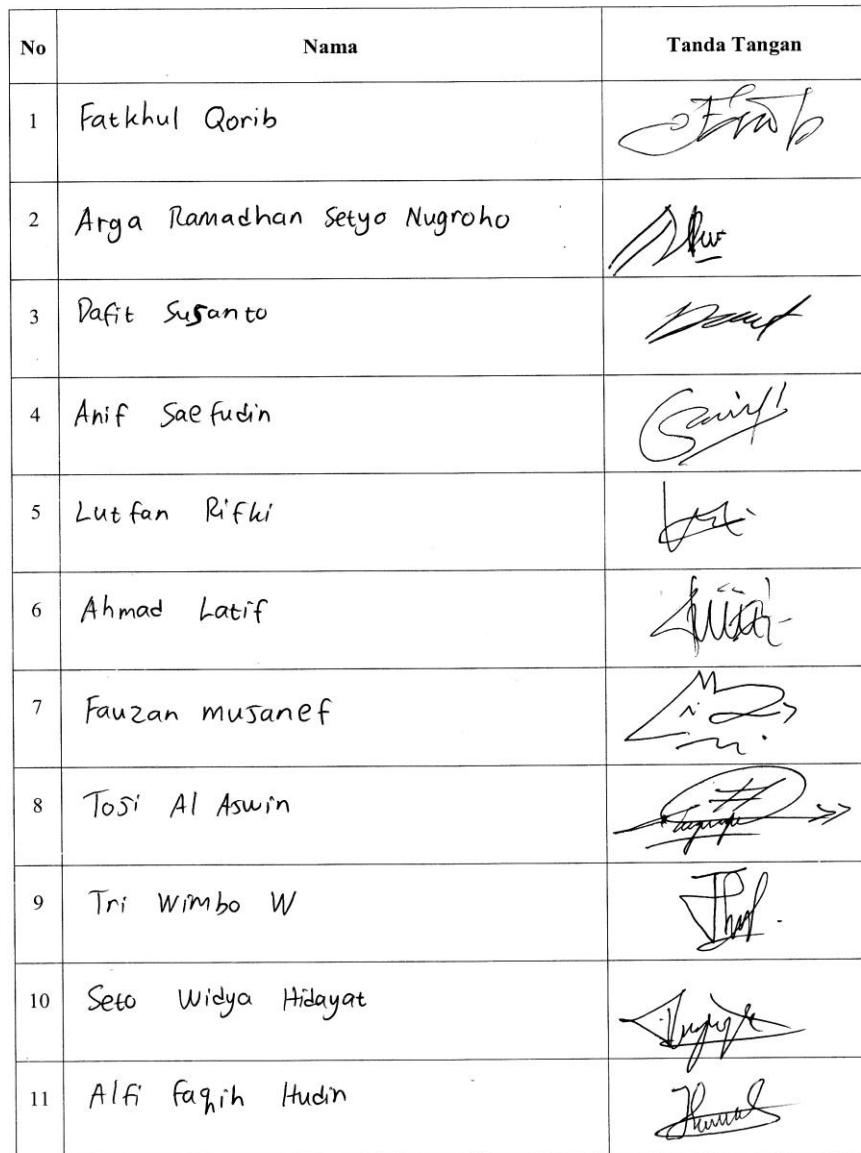 No Nama Tanda Tangan
1 Fatkhul Qorib
2 Arga Ramadhan Setyo Nugroho
3 Dafit Susanto
4 Anif Saefudin
5 Lutfan Rifki
6 Ahmad Latif
7 Fauzan musanef
8 Tosi Al Aswin
9 Tri Wimbo W
10 Seto Widya Hidayat
11 Alfi Faqih Hudin